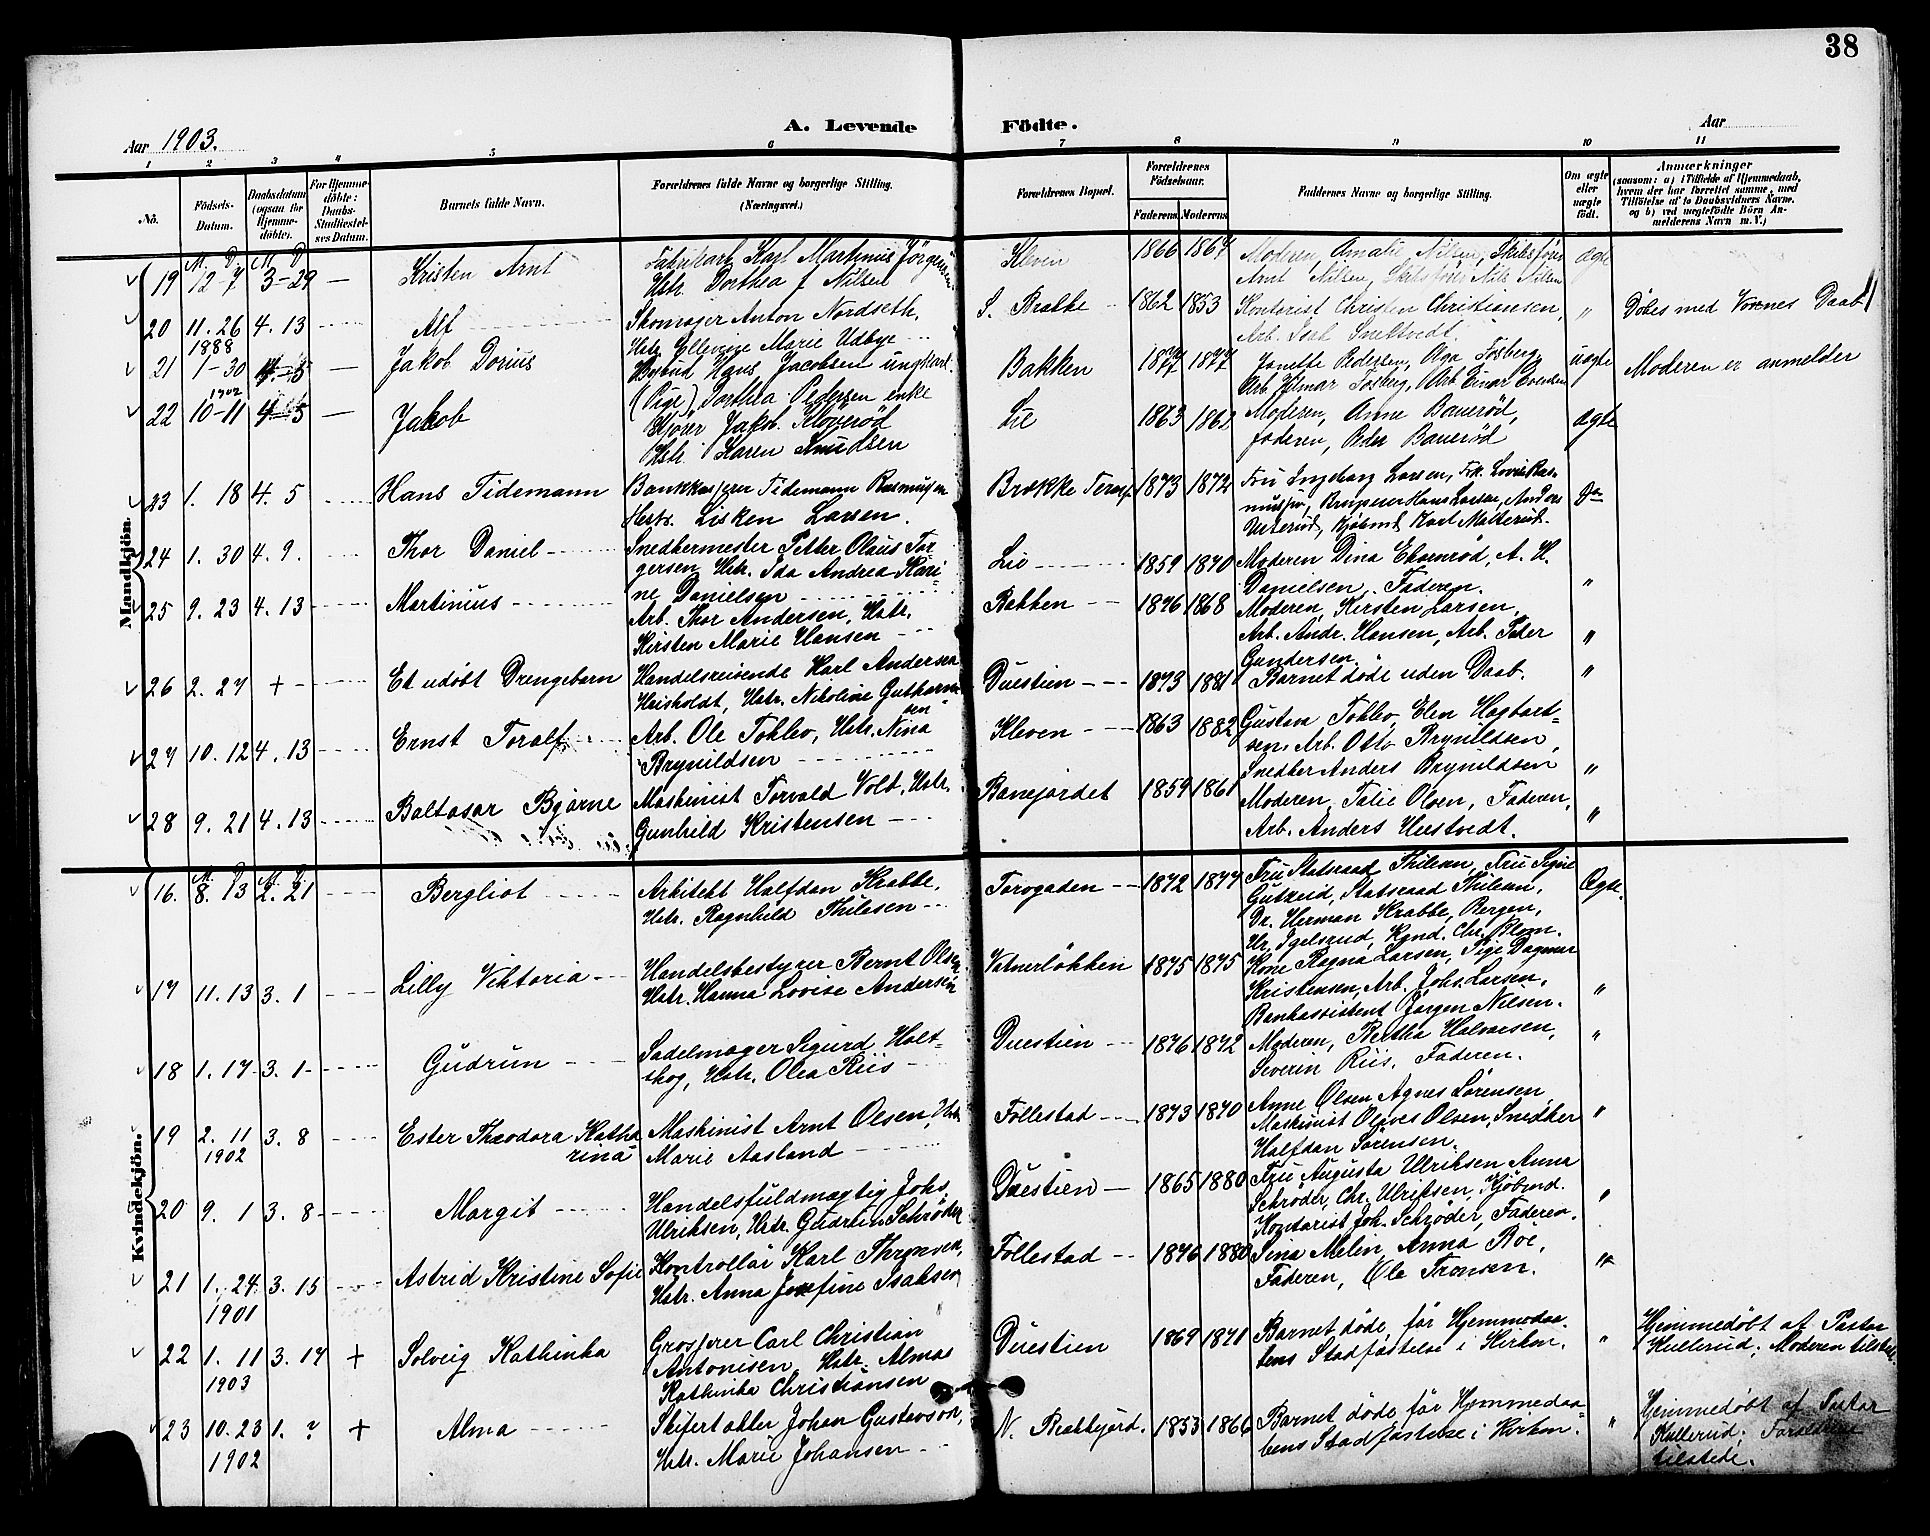 38
Aar 1903.
A. Levende Födte.
Aar
1 2 3 4 5 6 7 8 9 10 11
No.
Födsels-Datum.
Daabsdatum (ogsaa for Hjemme-döbte).
For Hjemme-döbte: Daabs-Stadfæstel-ses Datum.
Barnets fulde Navn.
Forældrenes fulde Navne og borgerlige Stilling. (Næringsvei.)
Forældrenes Bopæl.
Forældrenes Födselsaar.
Faderens Moderens
Faddernes Navne og borgerlige Stilling.
Om ægte eller uægte födt.
Anmærkninger (saasom: a) i Tilfælde af Hjemmedaab, hvem der har forrettet samme, med Tilföielse af to Daabsvidners Navne. og b) ved uægtefödte Börn An-melderens Navn m. V.)
Mandkjön.
M. D. M. D.
19 12-7 3-29 — Kristen Arnt
Fabrikarb. Karl Martinius Jörgensen
Hstr. Dorthea f Nilsen
Kleven 1866 1867
Moderen, Amalie Nilsen, Skibsfører
Arnt Nilsen, Skibsfører Nils Nilsen
ægte
20 11. 26 4. 13 Alf
1888
Skomager Anton Nordseth,
Hstr. Ellevine Marie Udbye
S. Brække 1862 1853
Kontorist Christen Christiansen,
Arb. Isak Smeltvedt.
" Döbes med Voxnes Daab
21 1-30 4-5 — Jakob Dorius
1902
Bybud Hans Jacobsen ungkarl
(Pige) Dorthea Pedersen enke
Bakken 1877 1877
Janette Pedersen, Olga Fosberg
Arb Hjlmar Fosberg, Arb Einar Evensen
uægte Moderen er anmelder
22 10-11 4-5 — Jakob
Kjører Jakob Kloverød
Hstr. Karen Knudsen
Lie 1863 1862
Moderen, Anne Bauerød,
Faderen, Peder Bauerød
ægte
23 1. 18 4. 5 Hans Tidemann
Bankkasserer Tidemann Rasmussen
Hstr. Lisken Larsen.
Brække Terasse 1873 1872
Fru Ingeborg Larsen, Frk. Lovise Ras-
mussen, Brugseier Hans Larsen, Anders
Usterud, Kjøbmd Karl Mølterud.
Do
24 1. 30 4. 9. Thor Daniel
Snedkermester Petter Olaus Tor-
gersen, Hstr. Ida Andrea Kari-
ne Danielsen
Lie 1859 1870
Moderen Dina Ekornrød, A. H.
Danielsen, Faderen.
"
25 9. 23 4. 13 Martinius
Arb. Thor Andersen, Hstr.
Kirsten Marie Hansen
Bakken 1876 1868
Moderen, Kirsten Larsen,
Arb. Andr. Hansen, Arb. Peder
Gundersen.
"
26 2. 27 + Et udöbt Drengebarn
Handelsreisende Karl Andersen
Heisholdt, Hstr. Nikoline Guthorm-
sen
Duestien 1873 1881
Barnet døde uden Daab.
"
27 10. 12 4. 13 Ernst Toralf
Arb. Ole Tokler, Hstr. Nina
Brynildsen
Kleven 1863 1882
Gustava Tokler, Elen Hagbart-
sen, Arb. Otto Brynildsen,
Snedker Anders Brynildsen
"
28 9. 21 4. 13 Baltasar Bjarne
Maskinist Torvald Volt, Hstr.
Gunhild Kristensen
Banejordet 1859 1861
Moderen, Talie Olsen, Faderen,
Arb. Anders Hustvedt.
"
Kvindekjön.
M. D. M. D.
16. 8. 13 2. 21 Bergliot
Arkitekt Halfdan Krabbe,
Hstr. Ragnhild Thilesen
Torvgaden 1872 1877
Fru Statsraad Thilesen, Fru Signe
Gutzeid, Statsraad Thilesen,
Dr. Herman Krabbe, Bergen,
Hr. Igelsrud, Kand. Chr. Blom.
Ægte.
17 11. 13 3. 1 Lilly Viktoria
Handelsbestyrer Bernt Olsen
Hstr. Hanna Lovise Andersen
Vatnerløkken 1875 1875
Kone Ragna Larsen, Pige Dagmar
Kristensen, Arb. Johs. Larsen,
Bankassistent Jørgen Nilsen.
"
18 1. 17 3. 1 Gudrun
Sadelmager Sigurd Holt-
skog, Hstr. Olea Riis
Duestien 1876 1872
Moderen, Bertha Halvorsen,
Severin Riis, Faderen.
"
19 2. 11 3. 8 Ester Theodora Katha
1902 rina
Maskinist Arnt Olsen, Hstr.
Marie Aasland
Follestad 1873 1870
Anne Olsen, Agnes Sørensen,
Maskinist Olaves Olsen, Snedker
Halfdan Sørensen.
"
20 9. 1 3. 8 Margit
Handelsfuldmægtig Johs.
Ulriksen, Hstr. Gudrun Schrøder
Duestien 1865 1880
Fru Augusta Ulriksen, Anna
Schrøder, Chr. Ulriksen, Kjöbmd.
Kontorist Joh. Schrøder, Faderen.
"
21 1. 24 3. 15 Astrid Kristine Sofie
1901
Kontrollør Karl Thronsen,
Hstr. Anna Josefine Isaksen
Follestad 1876 1880
Sina Melin, Anna Roe,
Faderen, Ole Tronsen.
"
22 1. 11 3. 17 + Solveig Kathinka
1903
Grosserer Carl Christian
Antonisen, Hstr. Alma
Kathinka Christiansen
Duestien 1869 1871
Barnet døde før Hjemmedaa-
bens Stadfæstelse i Kirken.
"
Hjemmedøbt af Pastor
Hullerud; Moderen tilstede.
23 10. 23 1. ? + Alma
1902
Skifertækker Johan Gustavson,
Hstr. Marie Johansen
N. Brækkejord. 1853 1866
Barnet døde før Hjemmedaa-
bens Stadfæstelse i Kirken.
"
Hjemmedøbt af Pastor
Hullerud; Forældrene
tilstede.